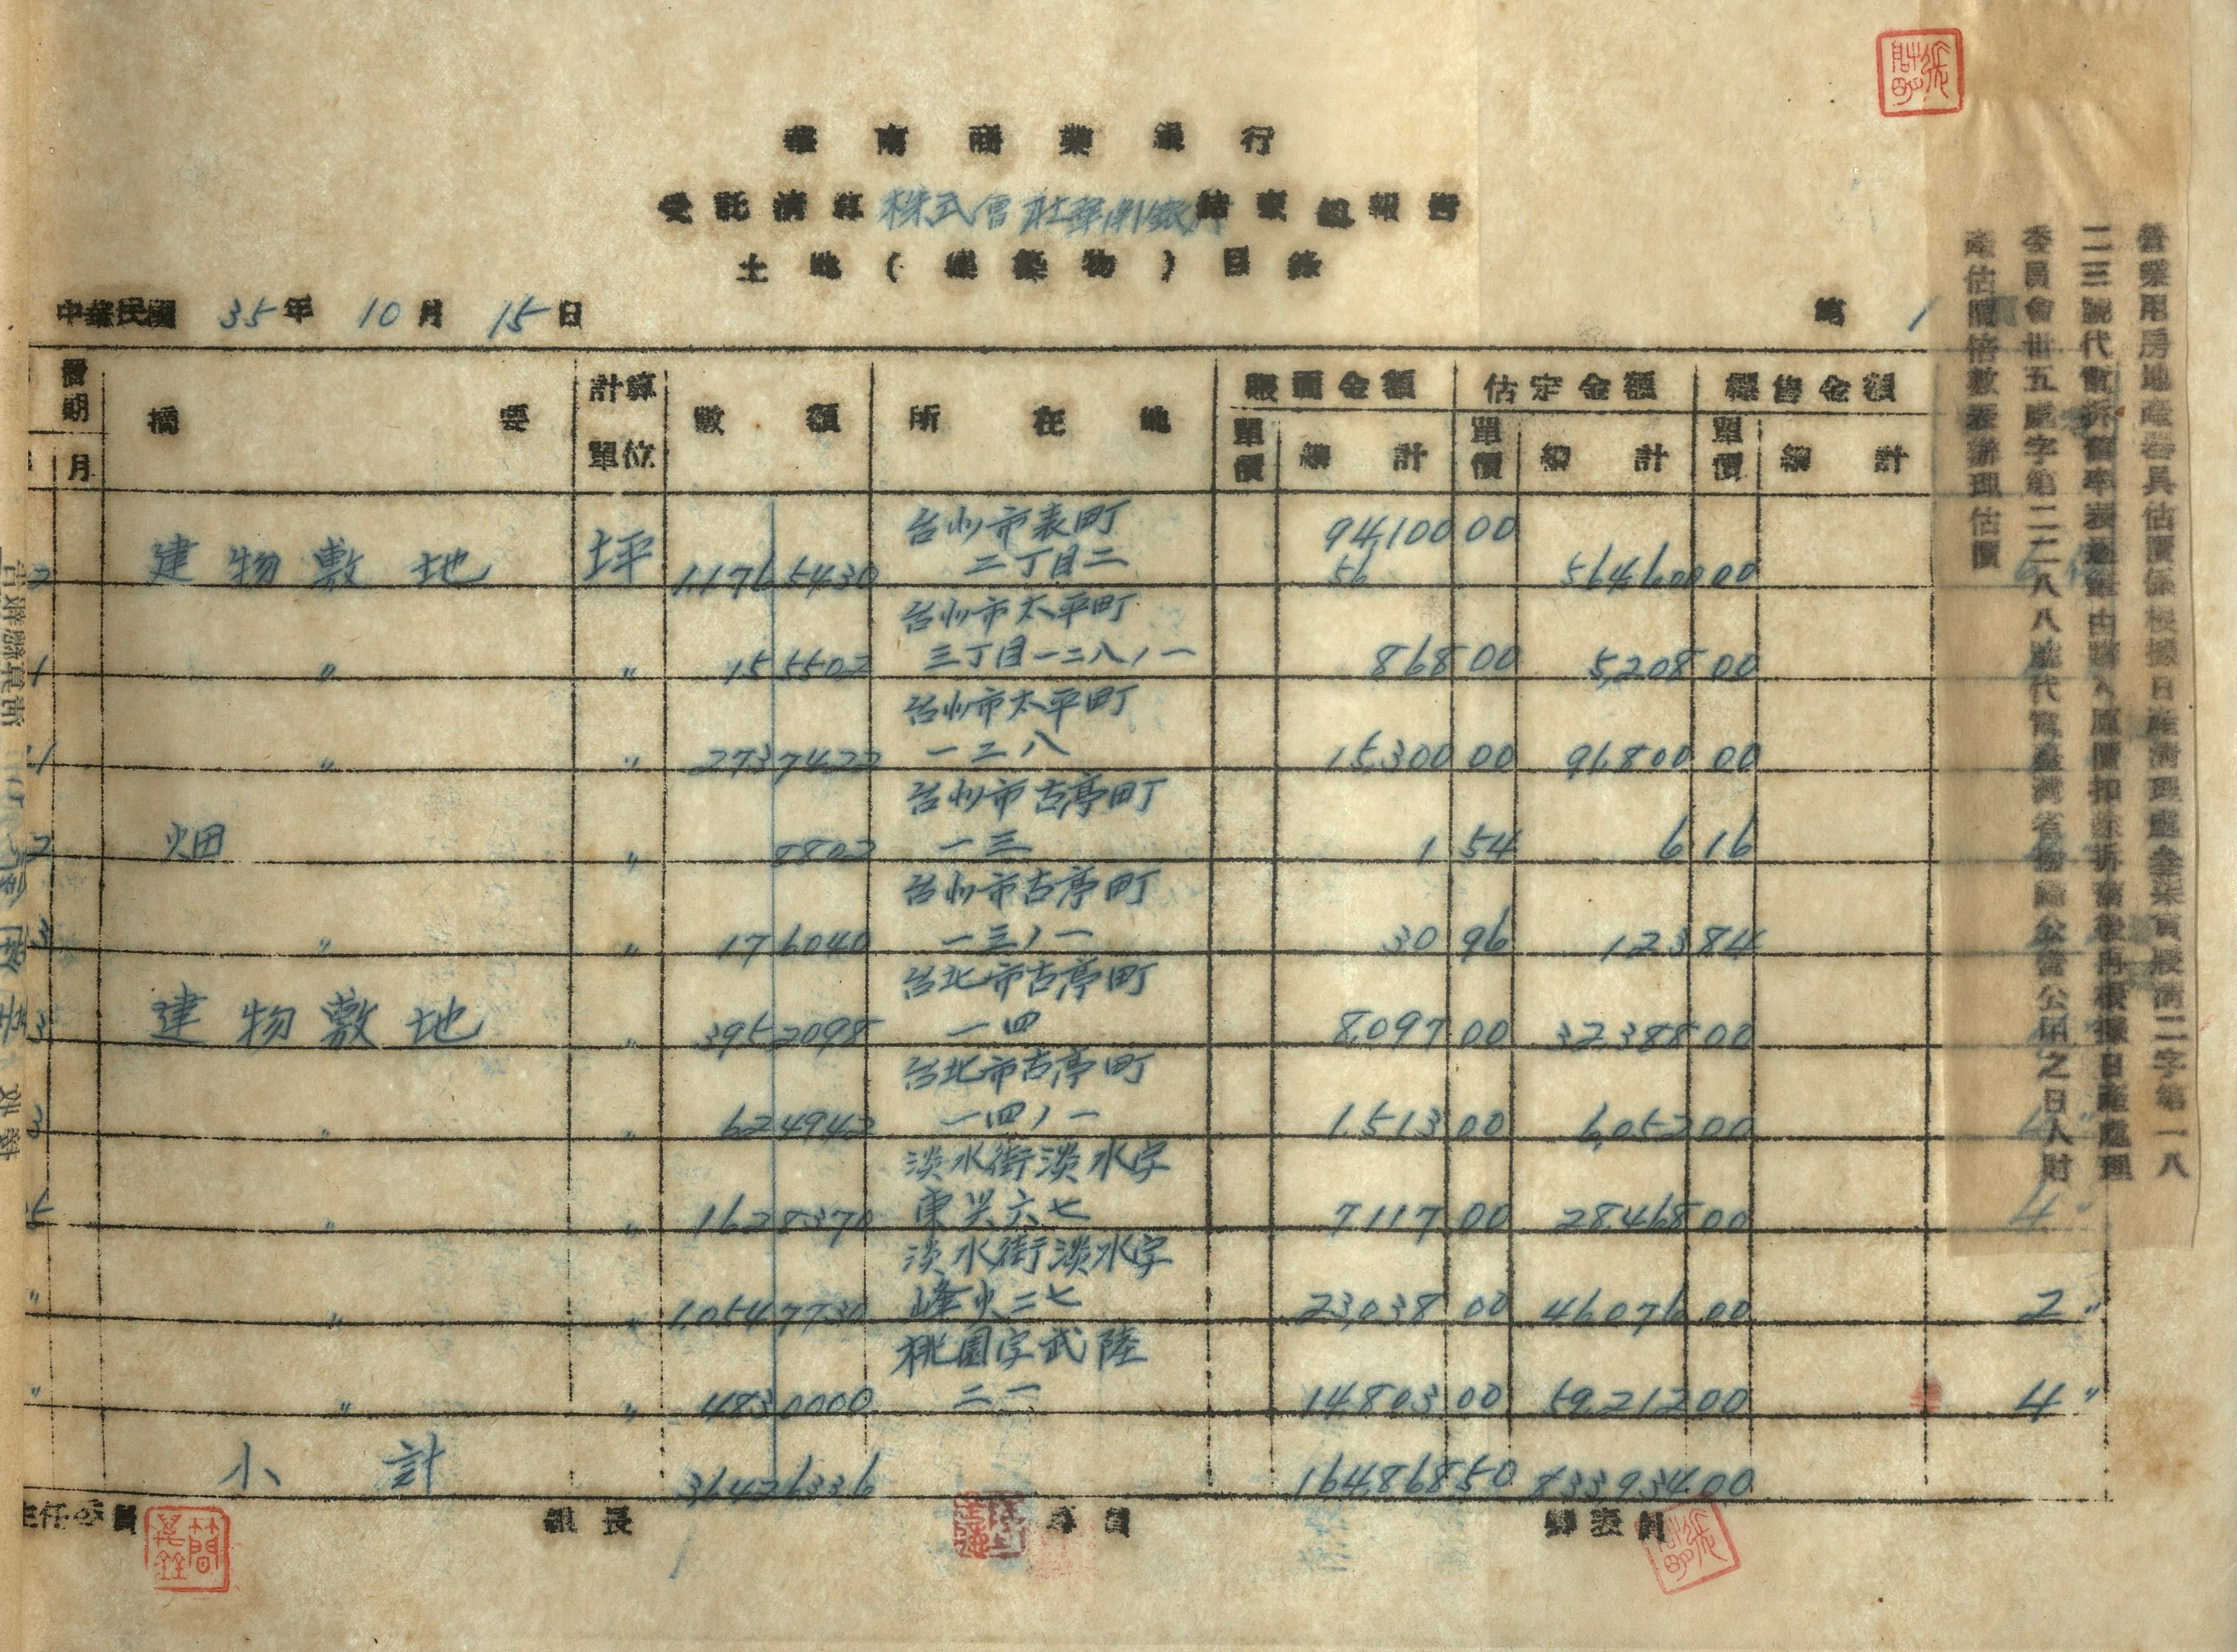 華南商業銀行
受託清算株式會社華南銀行結束總報告
土地(建築物)目錄
中華民國 35年 10月 15日 第 1
摘要 計算單位 數額 所在地 賬面金額 估定金額 標售金額
月 單價 總計 單價 總計 單價 總計
建物敷地 坪 1,176 5430 台北市表町二丁目二 94,100 00 564,600 00
〃 〃 15 5502 台北市太平町三丁目一二八ノ一 868 00 5,208 00
〃 〃 273 7422 台北市太平町一二八 15,300 00 91,800 00
畑 〃 8802 台北市古亭町一三 1 54 6 16
〃 〃 17 6040 台北市古亭町一三ノ一 30 96 123 84
建物敷地 〃 395 2098 台北市古亭町一四 8,097 00 32,388 00
〃 〃 62 4942 台北市古亭町一四ノ一 1,513 00 6,052 00
〃 〃 162 8370 淡水街淡水字東興六七 7,117 00 28,468 00 4〃
〃 〃 1,054 7730 淡水街淡水字烽火二七 23,038 00 46,076 00 2〃
〃 〃 483 0000 桃園字武陵二一 14,803 00 59,212 00 4〃
小計 3,642 6336 164,868 50 833,934 00
主任委員 組長 專員 製表員
營業用房地產器具估價係根據日產清理處
二三號代電折舊率表
委員會卅五處字第二二八八號代電臺灣省
產估價倍數表辦理估價